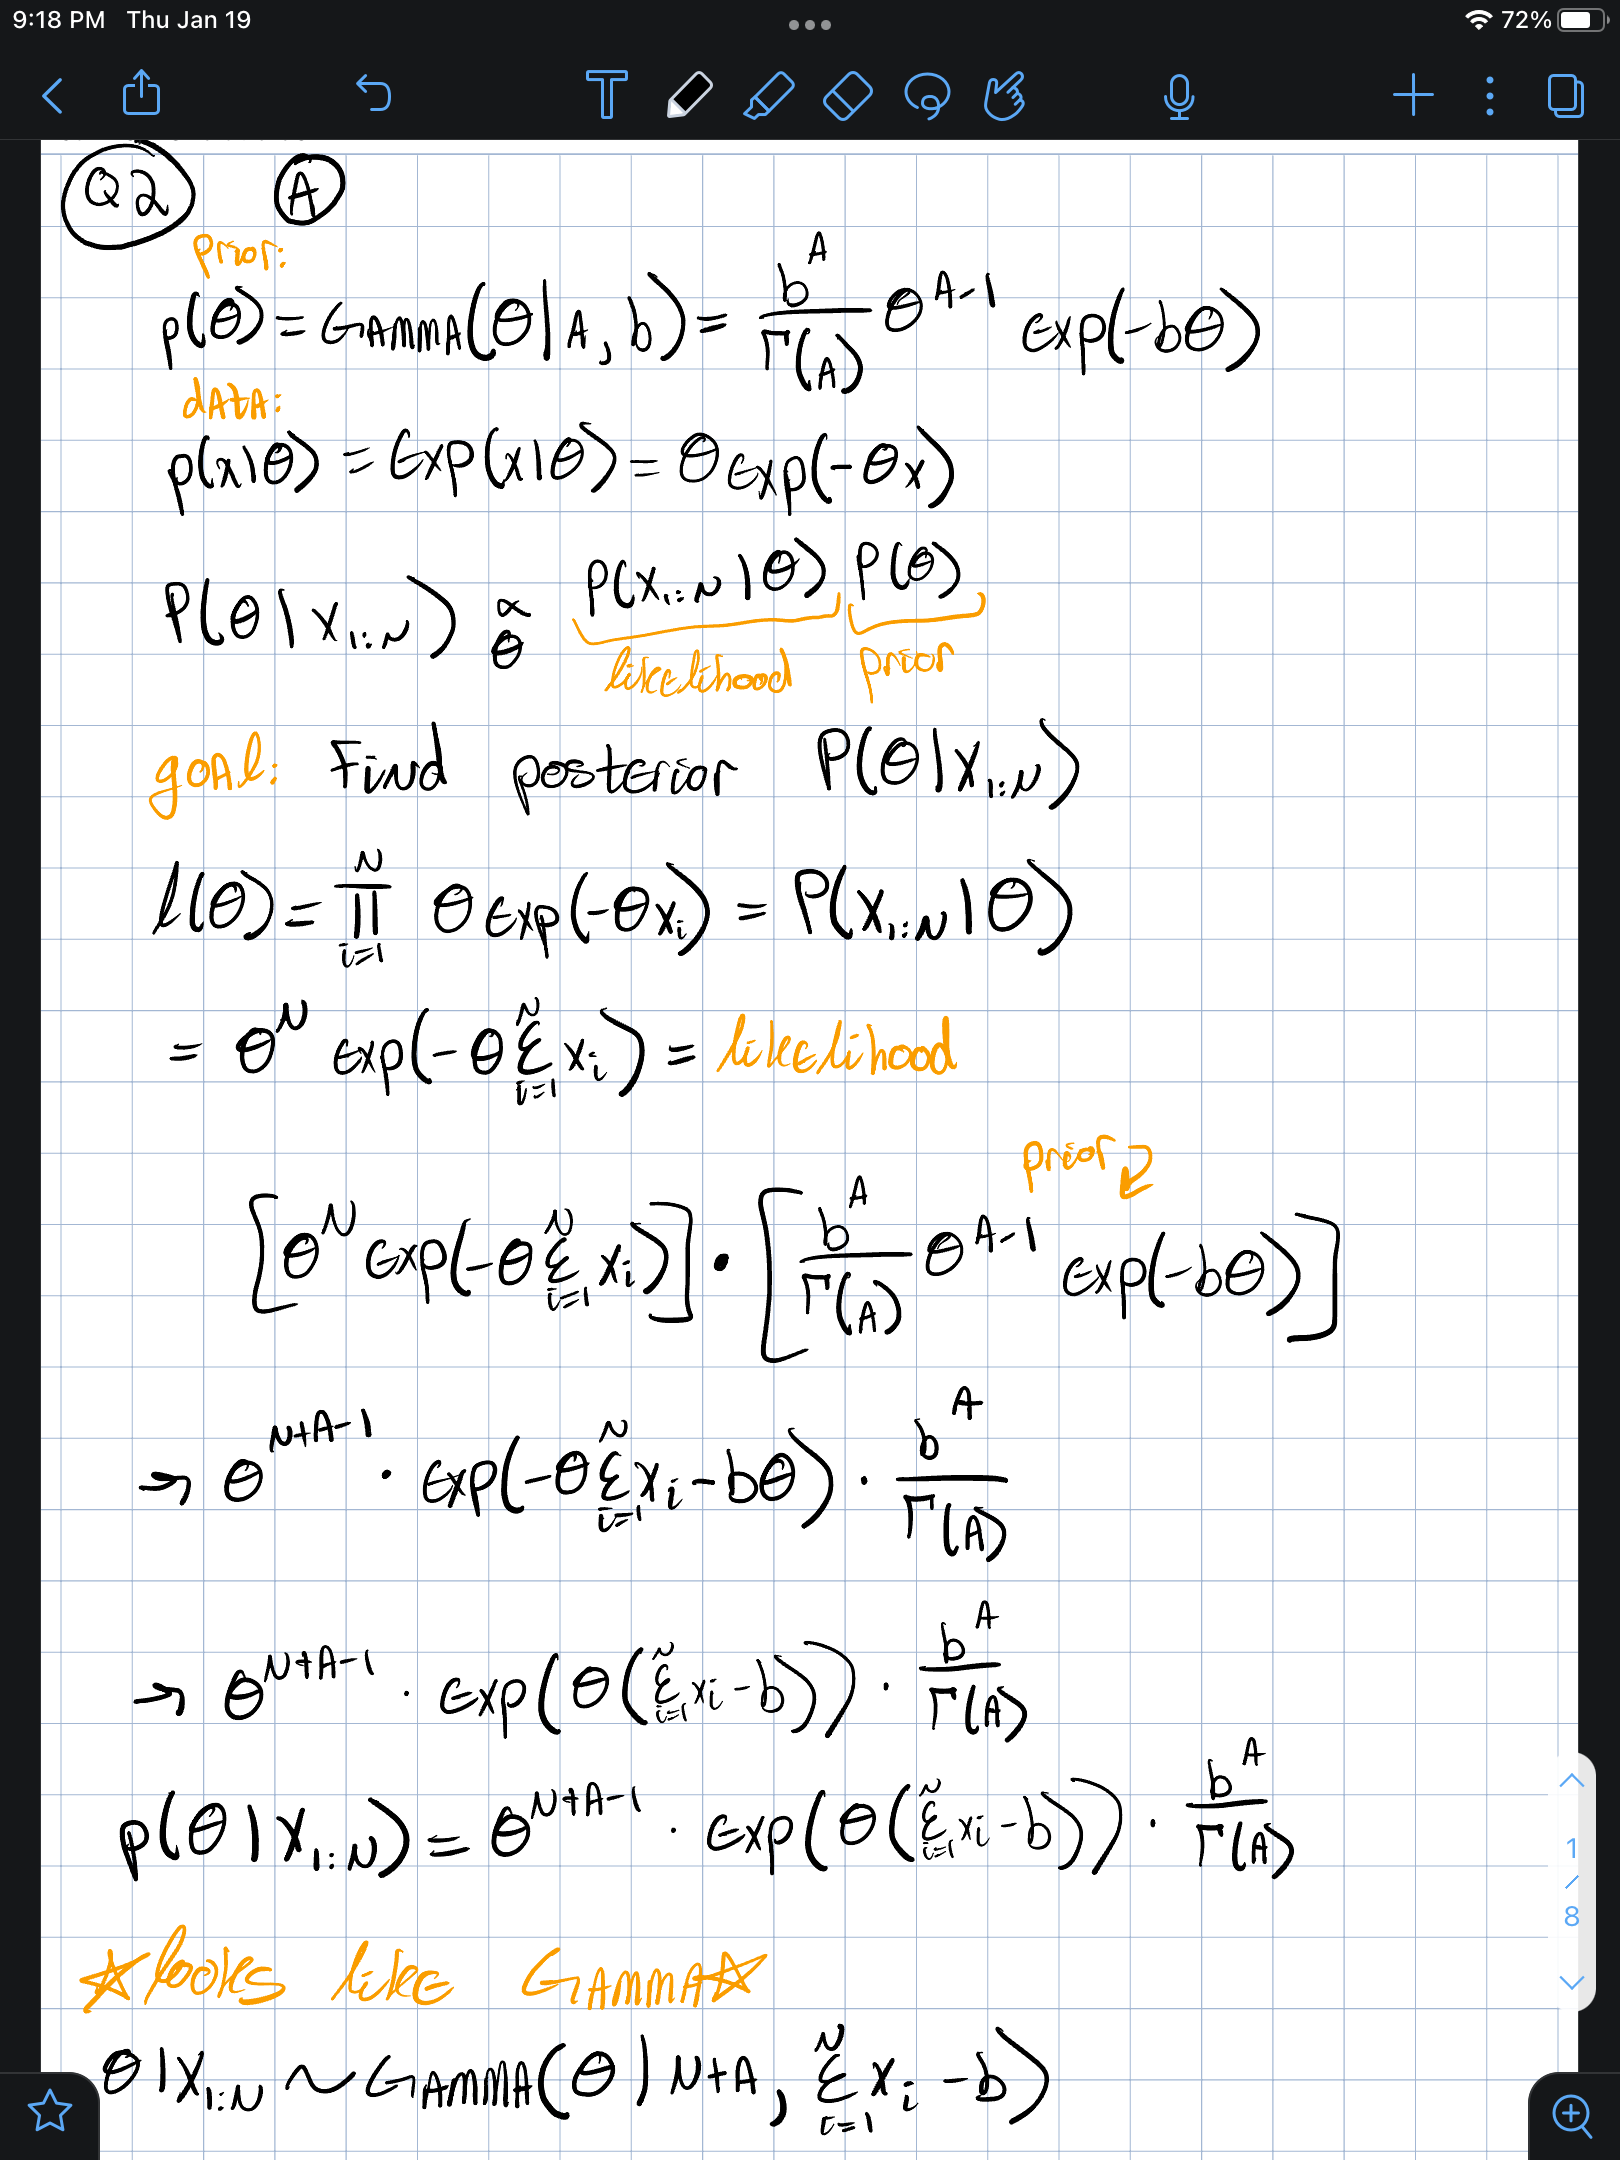 9:18 PM Thu Jan 19 72%
Q2 A
prior:
p(θ) = GAMMA(θ|A, b) = b^A / Γ(A) θ^(A-1) exp(-bθ)
dATA:
p(x|θ) = Exp(x|θ) = θ exp(-θx)
P(θ|x_1:N) ∝_θ P(x_1:N|θ) P(θ)
likelihood prior
goal: Find posterior P(θ|x_1:N)
l(θ) = ∏_{i=1}^N θ exp(-θx_i) = P(x_1:N|θ)
= θ^N exp(-θ Σ_{i=1}^N x_i) = likelihood
prior
[θ^N exp(-θ Σ_{i=1}^N x_i)] · [b^A / Γ(A) θ^(A-1) exp(-bθ)]
→ θ^(N+A-1) · exp(-θ Σ_{i=1}^N x_i - bθ) · b^A / Γ(A)
→ θ^(N+A-1) · exp(θ(Σ_{i=1}^N x_i - b)) · b^A / Γ(A)
p(θ|x_1:N) = θ^(N+A-1) · exp(θ(Σ_{i=1}^N x_i - b)) · b^A / Γ(A)
☆looks like GAMMA☆
θ|x_1:N ~ GAMMA(θ|N+A, Σ_{i=1}^N x_i - b)
1 / 8